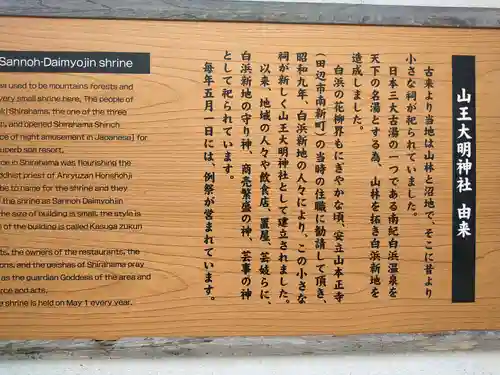 山王大明神社 由来
古来より当地は山林と沼地で、そこに昔より
小さな祠が祀られていました。
日本三大古湯の一つである南紀白浜温泉を
天下の名湯とする為、山林を拓き白浜新地を
造成しました。
白浜の花柳界もにぎやかな頃、安立山本正寺
(田辺市南新町)の当時の住職に勧請して頂き、
昭和九年、白浜新地の人々により、この小さな
祠が新しく山王大明神社として建立されました。
以来、地域の人々や飲食店、置屋、芸妓らに、
白浜新地の守り神、商売繁盛の神、芸事の神
として祀られています。
毎年五月一日には、例祭が営まれています。
Sannoh-Daimyojin shrine
used to be mountains forests and
very small shrine here. The people of
Shirahama, the one of the three
and opened Shirahama Shinch
ce of night amusement in Japanese] for
superb spa resort.
ce in Shirahama was flourishing the
ddhist priest of Anryuzan Honshoji
be to name for the shrine and they
the shrine as Sannoh Daimyojin
he size of building is small, the style is
of the building is called Kasuga zukuri
ts, the owners of the restaurants, the
ons, and the geishas of Shirahama pray
as the guardian Goddess of the area and
rce and acts.
e shrine is held on May 1 every year.